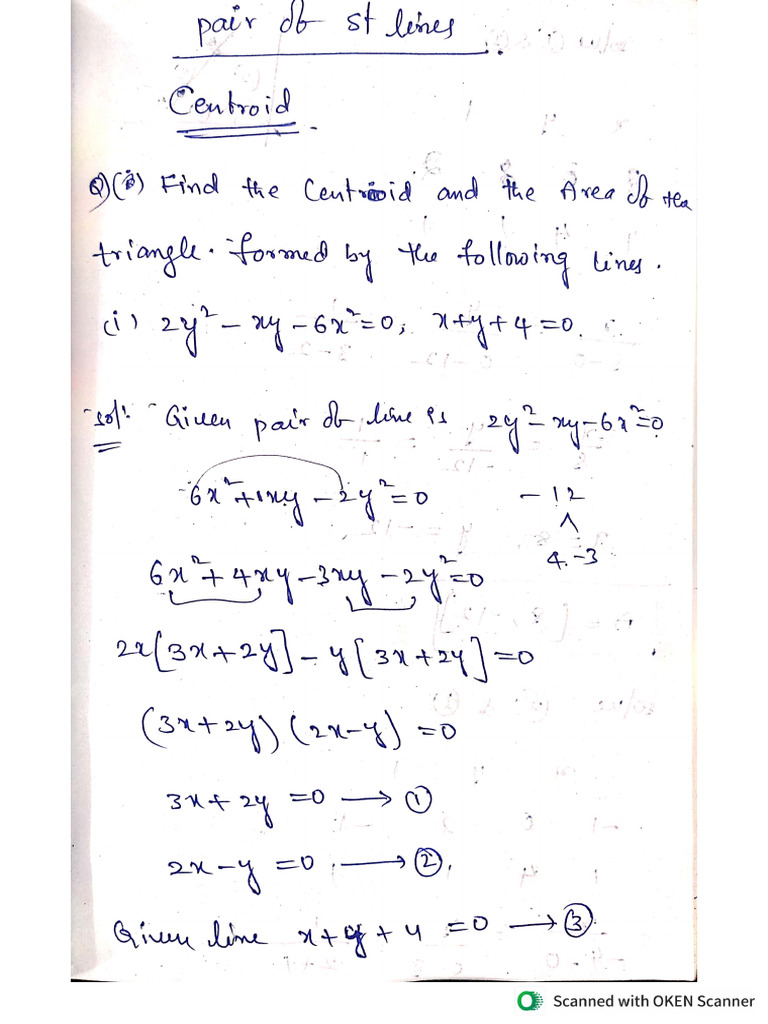 pair of st lines
Centroid
Q)(i) Find the Centroid and the Area of the
triangle. formed by the following lines.
(i) 2y² - xy - 6x² = 0; x+y+4 = 0.
sol: Given pair of line is 2y² - xy - 6x² = 0
6x² + 1xy - 2y² = 0 -12
^
4. -3
6x² + 4xy - 3xy - 2y² = 0
2x[3x + 2y] - y[3x + 2y] = 0
(3x + 2y) (2x - y) = 0
3x + 2y = 0 → ①
2x - y = 0 → ②.
Given line x + y + 4 = 0 → ③.
Scanned with OKEN Scanner